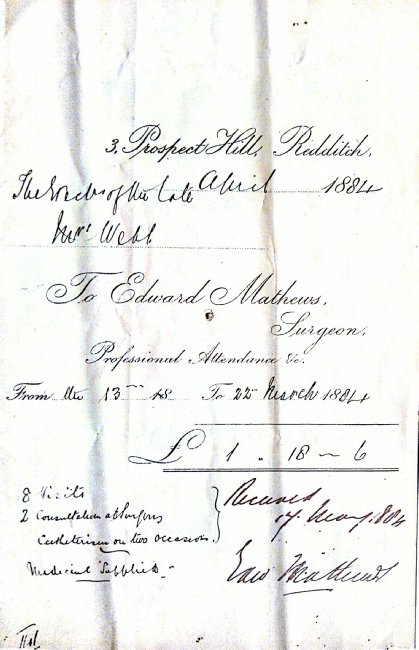 3, Prospect Hill, Redditch.
April 1884
The of the late
Mrs Webb
To Edward Mathews,
Surgeon.
Professional Attendance &c.
From the 13 To 22 March 1884
£ 1 . 18 ~ 6
8 Visits
2 Consultation
Catheterism on two occasions.
Medicines Supplied
Received
17 May 1884
Edw Mathews